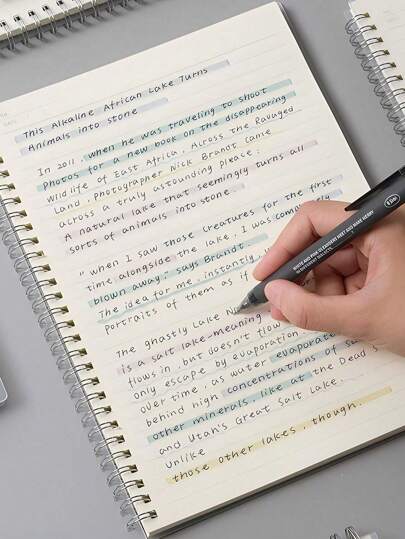 This Alkaline African Lake Turns
Animals into stone
In 2011, when he was traveling to shoot
photos for a new book on the disappearing
wildlife of East Africa, Across the Ravaged
Land, photographer Nick Brandt came
across a truly astounding pleace:
A natural lake that seemingly turns all
sorts of animals into stone.
"When I saw those creatures for the first
time alongside the lake, I was completely
blown away." says Brandt.
The idea for me, instantly,
portraits of them as if
The ghastly Lake
is a salt lake-meaning
flows in, but doesn't flow
only escape by evaporation
over time, as water evaporates
behind high concentrations of
other minerals, like at the Dead S
and Utah's Great Salt Lake.
Unlike
those other lakes, though.